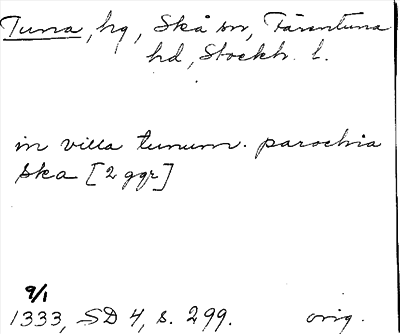 Tuna, hg, Skå sn, Färentuna
hd, Stockh. l.
in villa tunum. parochia
ska [2 ggr]
9/1
1333, SD 4, s. 299. orig.